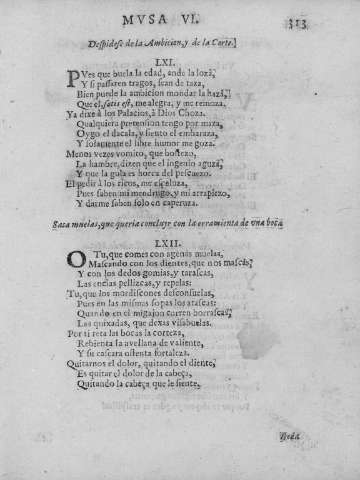 MVSA VI.
313
Despidese de la Ambicion, y de la Corte.
LXI.
PVes que buela la edad, ande la loza,
Y si passaren tragos, sean de taza,
Bien puede la ambicion mondar la haza,
Que el satis est, me alegra, y me remoza.
Ya dixe à los Palacios, à Dios Choza.
Qualquiera pretension tengo por maza,
Oygo el dacala, y siento el embaraza,
Y solamente el libre humor me goza.
Menos vezes vomito, que bostezo,
La hambre, dizen que el ingenio aguza,
Y que la gula es horca del pescuezo.
El pedir à los ricos, me espeluza,
Pues saben mi mendrugo, y mi arrapiezo,
Y darme saben solo en caperuza.
Saca muelas, que queria concluyr con la erramienta de vna boca
LXII.
O Tu, que comes con agenas muelas,
Mascando con los dientes, que nos mascas,
Y con los dedos gomias, y tarascas,
Las encias pellizcas, y repelas:
Tu, que los mordiscones desconsuelas,
Pues en las mismas sopas los atascas:
Quando en el migajon corren borrascas,
Las quixadas, que dexas visabuelas.
Por ti reta las bocas la corteza,
Rebienta la avellana de valiente,
Y su cascara ostenta fortaleza.
Quitarnos el dolor, quitando el diente,
Es quitar el dolor de la cabeça,
Quitando la cabeça que le siente.